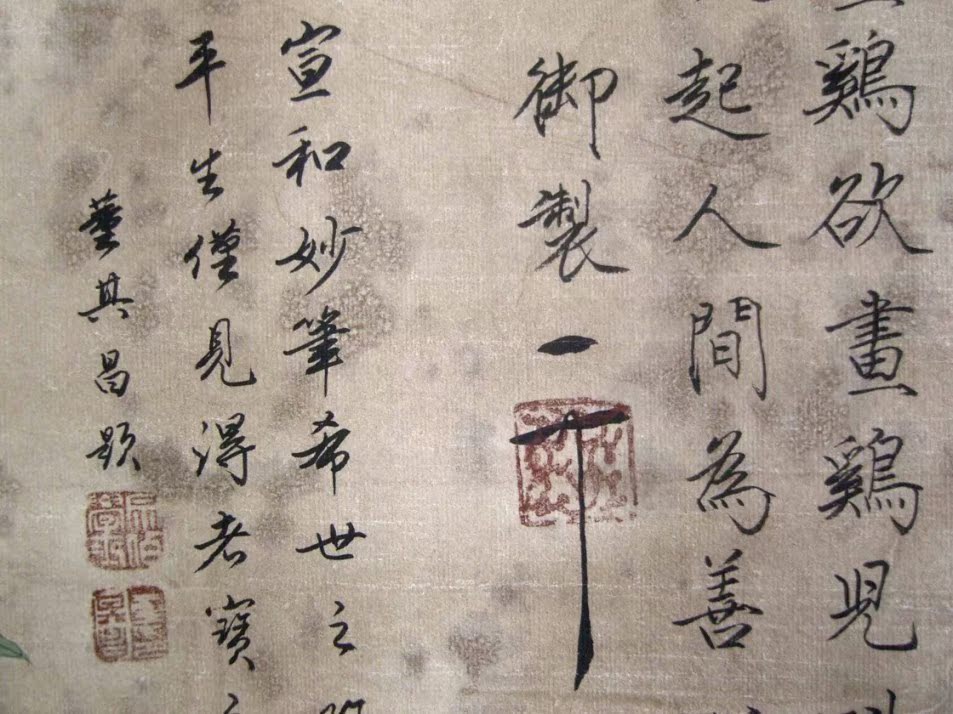 鷄欲畫鷄児
起人間為善
御製
宣和妙筆希世之
平生僅見得者寶之
董其昌題